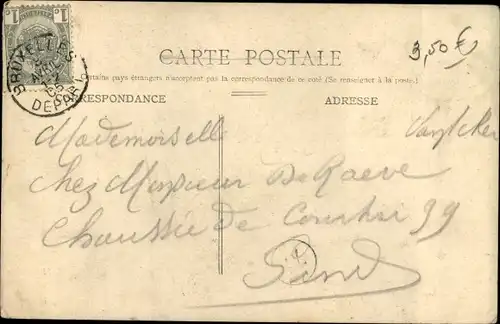 1 1
BRUXELLES
DEPART
3,50 €
CARTE POSTALE
tains pays étrangers n'acceptent pas la correspondance de ce coté (Se renseigner à la poste.)
RRESPONDANCE ADRESSE
Mademoiselle
Chez Monsieur De Raeve
Chaussée de Courtrai 99
Gand